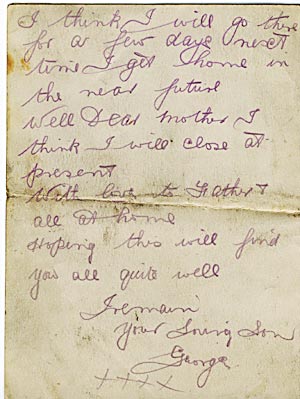 I think I will go there
for a few days next
time I get home in
the near future
well Dear mother I
think I will close at
present
with love to Father &
all at home
Hoping this will find
you all quite well
I remain
your Loving Son
George
XXXX